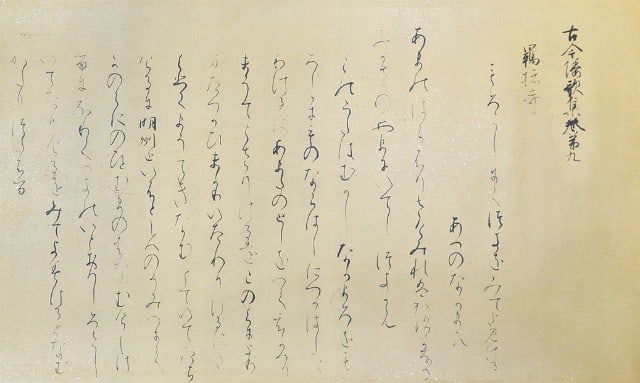 古今倭歌集巻第九
羈旅哥
もろこしにてつきをみてよみける
あへのなかまろ
あまのはらふりさけみれはかすかなる
みかさのやまにいてしつきかも
このうたはむかしなかまろをも
ろこしにものならはしにつかはした
りけるにあまたのとしをへてえかへり
まうてこさりけるをこのくにより
またつかひまかりいたりけるに
たくひてまうてきなむとていてたち
けるに明州といふところのうみへにて
かのくにのひとむまのはなむけしけり
よるになりてつきのいとおもしろくさし
いてたりけるをみてよめるとなむ
かたりつたふる